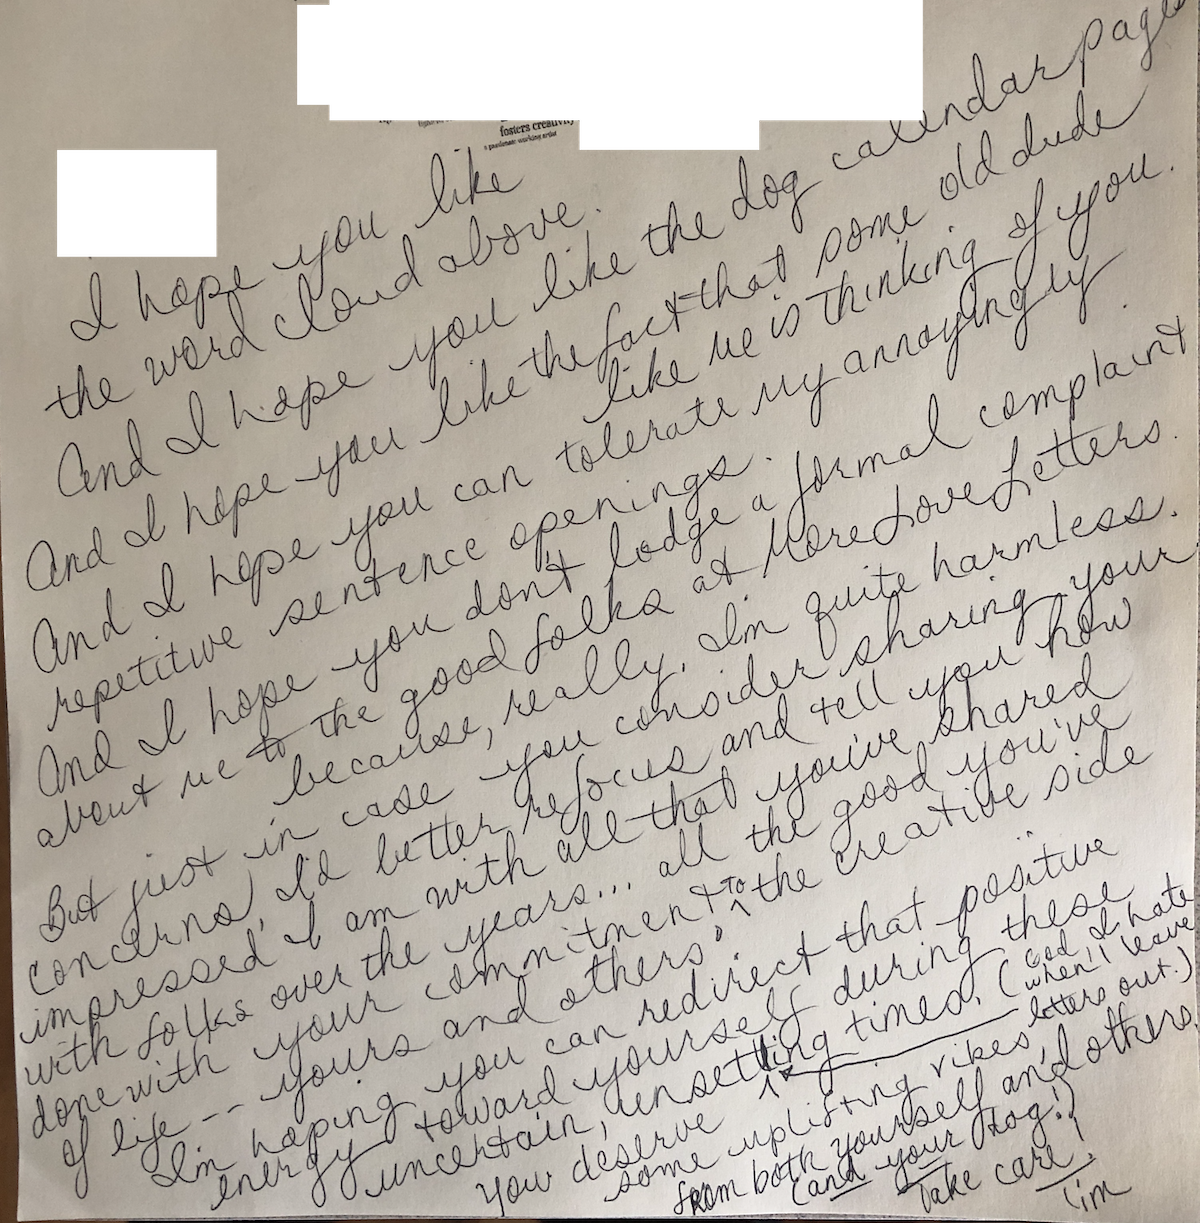 fosters creativity
a passionate working artist
I hope you like
the word cloud above.
And I hope you like the dog calendar pages
And I hope you like the fact that some old dude
like me is thinking of you.
And I hope you can tolerate my annoyingly
repetitive sentence openings.
And I hope you don't lodge a formal complaint
about me to the good folks at More Love Letters.
because, really, I'm quite harmless.
But just in case you consider sharing your
concerns, I'd better refocus and tell you how
impressed I am with all that you've shared
with folks over the years... all the good you've
done with your commitment to the creative side
of life -- yours and others'.
I'm hoping you can redirect that positive
energy toward yourself during these
uncertain, unsettling times. (God I hate
when I leave
letters out.)
You deserve
some uplifting vibes
from both yourself and others
(and your dog!)
Take care,
Tim